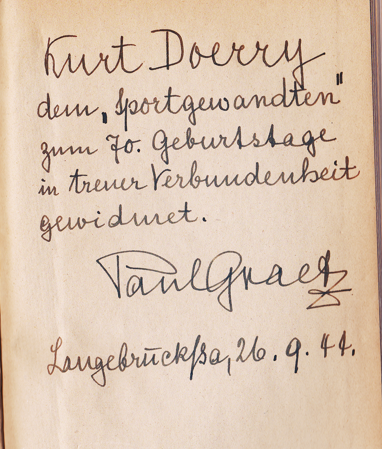 Kurt Doerry
dem „Sportgewandten"
zum 70. Geburtstage
in treuer Verbundenheit
gewidmet.
Paul Graetz
Langebrück/Sa, 26. 9. 44.